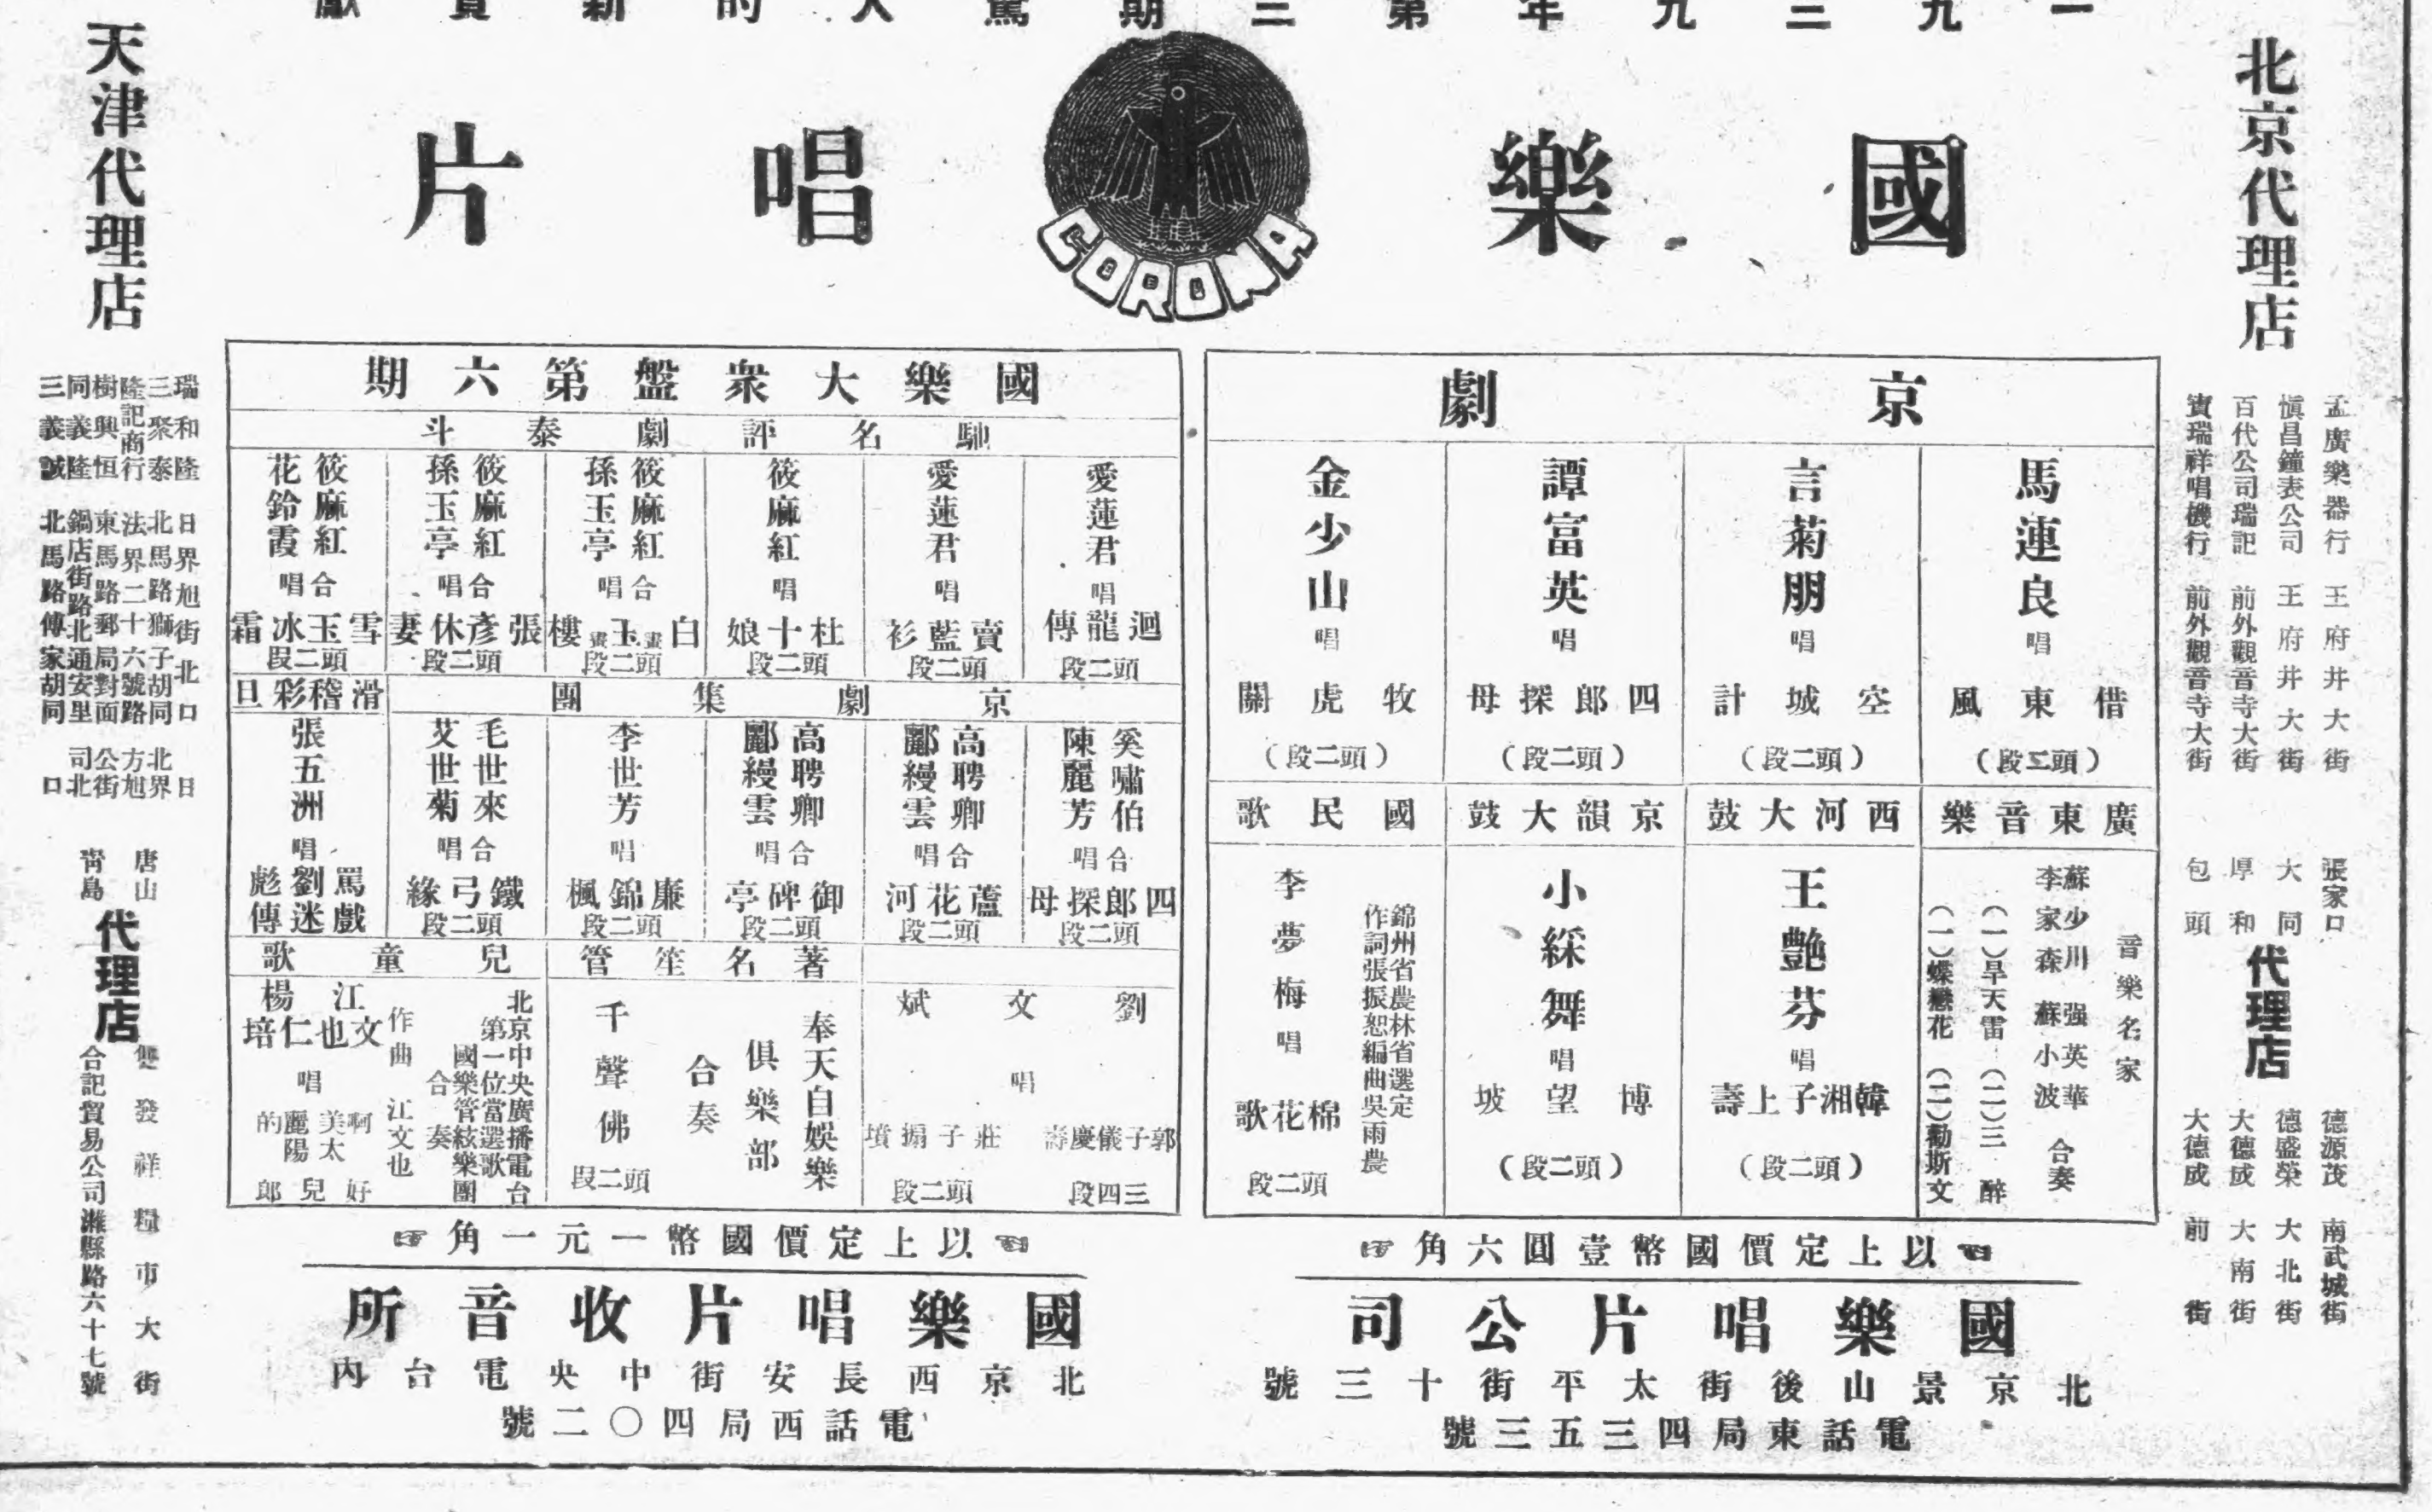 一九三九年第三期驚人的新貢獻
國樂唱片
CORONA
北京代理店
孟廣樂器行 王府井大街
慎昌鐘表公司 王府井大街
百代公司瑞記 前外觀音寺大街
寶瑞祥唱機行 前外觀音寺大街
張家口
大同
厚和
包頭
代理店
德源茂 南武城街
德盛榮 大北街
大德成 大南街
大德成 前街
京劇
馬連良唱
借東風
(頭二段)
言菊朋唱
空城計
(頭二段)
譚富英唱
四郎探母
(頭二段)
金少山唱
牧虎關
(頭二段)
廣東音樂
音樂名家
蘇少川 强英華
李家森 蘇小波
合奏
(一)旱天雷 (二)三醉
(一)蝶戀花 (二)勸斯文
西河大鼓
王艷芬唱
韓湘子上壽
(頭二段)
京韻大鼓
小綵舞唱
博望坡
(頭二段)
國民歌
錦州省農林省選定
作詞張振恕編曲吳雨農
李夢梅唱
棉花歌
頭二段
以上定價國幣壹圓六角
國樂唱片公司
北京景山後街太平街十三號
電話東局四三五三號
國樂大衆盤第六期
馳名評劇泰斗
愛蓮君唱
迴龍傳
頭二段
愛蓮君唱
賣藍衫
頭二段
筱麻紅唱
杜十娘
頭二段
筱麻紅
孫玉亭
合唱
白畫玉畫樓
頭二段
筱麻紅
孫玉亭
合唱
張彥休妻
頭二段
筱麻紅
花鈴霞
合唱
雪玉冰霜
頭二段
京劇集團
奚嘯伯
陳麗芳
合唱
四郎探母
頭二段
高聘卿
酈縵雲
合唱
蘆花河
頭二段
高聘卿
酈縵雲
合唱
御碑亭
頭二段
李世芳唱
廉錦楓
頭二段
毛世來
艾世菊
合唱
鐵弓緣
頭二段
滑稽彩旦
張五洲唱
罵劉彪
戲迷傳
劉文斌
唱
郭子儀慶壽
三四段
莊子搧墳
頭二段
著名笙管
奉天自娛樂
俱樂部
合奏
千聲佛
頭二段
兒童歌
北京中央廣播電台
第一位當選歌
國樂管絃樂團
合奏
作曲 江文也
江文也
楊仁培
唱
啊美麗的
太陽
好兒郎
以上定價國幣一元一角
國樂唱片收音所
北京西長安街中央電台內
電話西局四〇二號
天津代理店
瑞和隆 日界旭街北口
三聚泰 北馬路獅子胡同
隆記商行 法界二十六號路
樹興恒 東馬路郵局對面
同義隆 鍋店街路北通安里
三義誠 北馬路傅家胡同口
唐山
青島
代理店
發祥糧市大街
合記貿易公司濰縣路六十七號